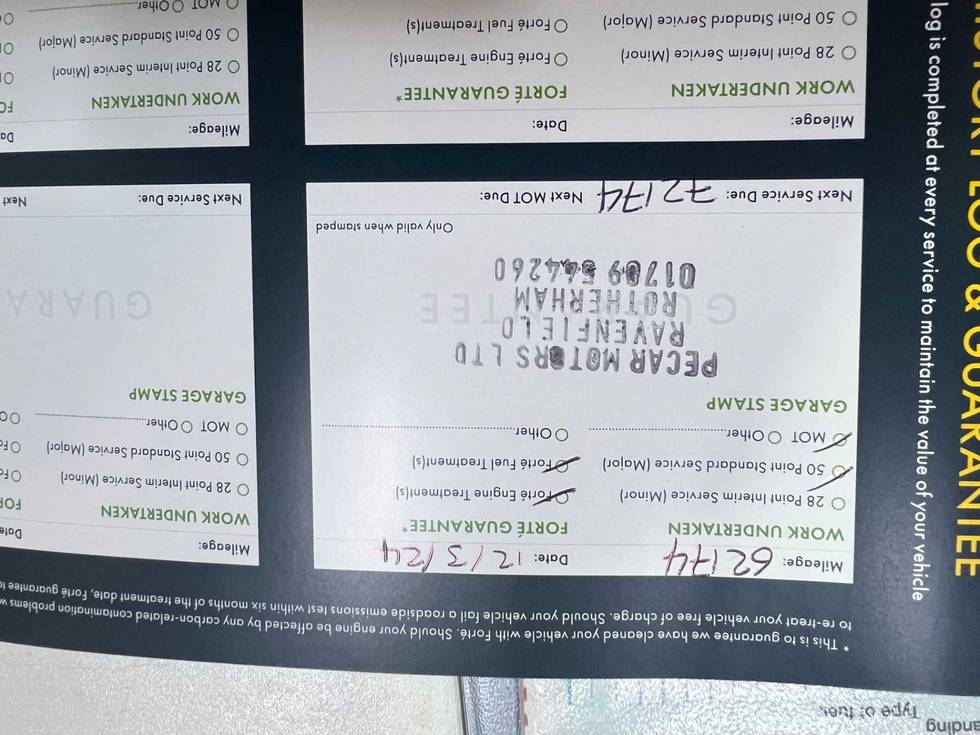 Type of fuel
* This is to guarantee we have cleaned your vehicle with Forté. Should your engine be affected by any carbon-related contamination problems
to re-treat your vehicle free of charge. Should your vehicle fail a roadside emissions test within six months of the treatment date, Forté guarantee
Mileage: 62174 Date: 12/3/24
WORK UNDERTAKEN FORTÉ GUARANTEE*
28 Point Interim Service (Minor) Forté Engine Treatment(s)
50 Point Standard Service (Major) Forté Fuel Treatment(s)
MOT Other Other
GARAGE STAMP
PECAR MOTORS LTD
RAVENFIELD
ROTHERHAM
01709 544260
Only valid when stamped
Next Service Due: 72174 Next MOT Due:
Mileage: Date:
WORK UNDERTAKEN FORTÉ GUARANTEE*
28 Point Interim Service (Minor) Forté Engine Treatment(s)
50 Point Standard Service (Major) Forté Fuel Treatment(s)
Mileage: Date
WORK UNDERTAKEN
28 Point Interim Service (Minor)
50 Point Standard Service (Major)
MOT Other
GARAGE STAMP
GUARA
Next Service Due: Next
Mileage: Da
WORK UNDERTAKEN
28 Point Interim Service (Minor)
50 Point Standard Service (Major)
MOT Other
LOG & GUARANTEE
log is completed at every service to maintain the value of your vehicle